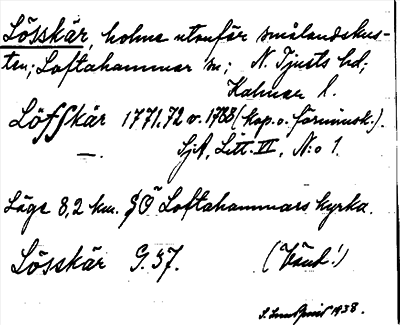 Lösskär, holme utanför smålandskus-
ten; Loftahammar sn; N. Tjusts hd;
Kalmar l.
Löfskär 1771.72 o. 1788 (kop. o. förminsk.).
—. SjA, Litt. VI, N:o 1.
Läge 8,2 km. SÖ Loftahammars kyrka.
Lösskär G. 37. (Vänd!)
1938.